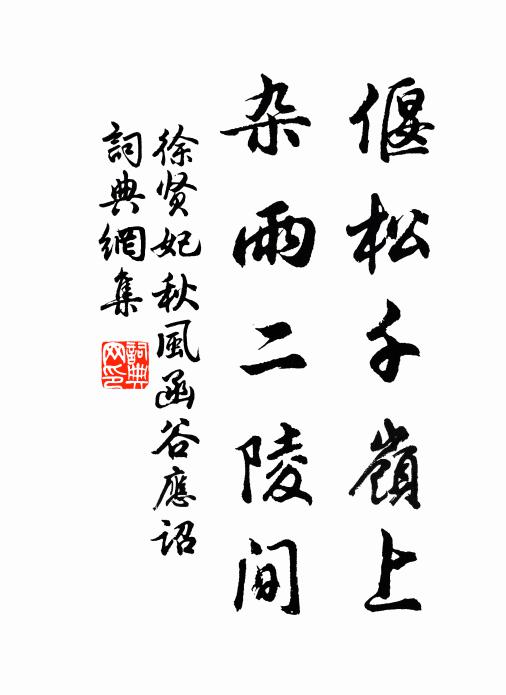 偃松千嶺上
杂雨二陵间
徐贤妃秋風函谷應詔
詞典網集
詞典
网印